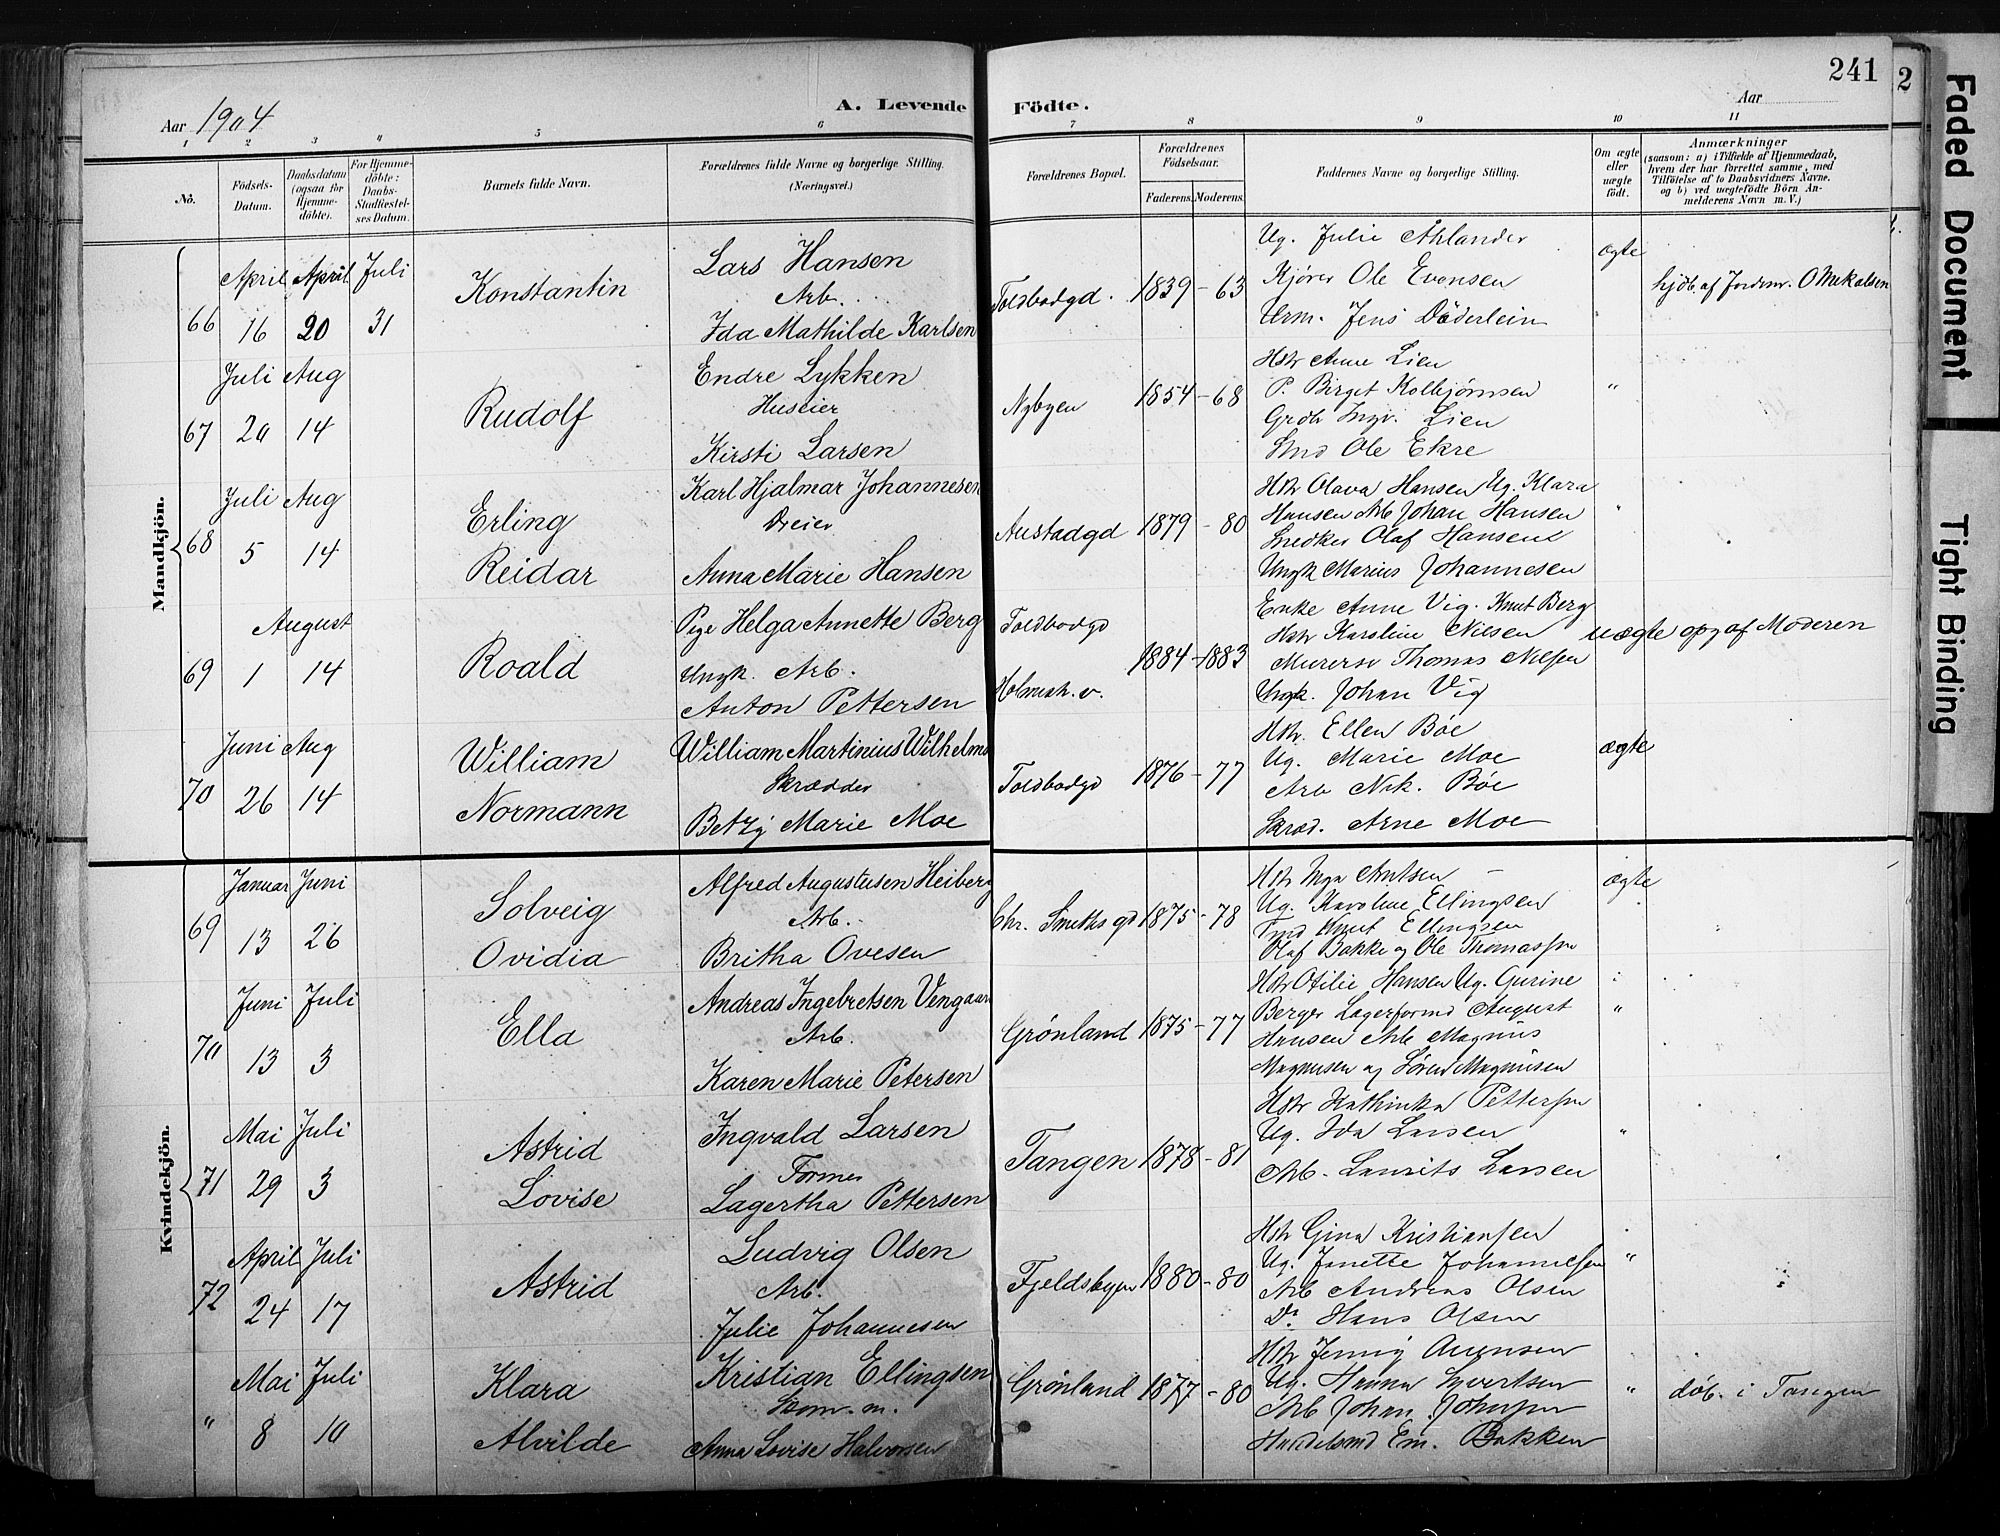 241
2
Faded Document
Tight Binding
Aar 1904
A. Levende Födte.
Aar
1 2 3 4 5 6 7 8 9 10 11
No.
Födsels-Datum.
Daabsdatum (ogsaa for Hjemme-döbte).
For Hjemme-döbte: Daabs-Stadfæstel-ses Datum.
Barnets fulde Navn.
Forældrenes fulde Navne og borgerlige Stilling. (Næringsvei.)
Forældrenes Bopæl.
Forældrenes Födselsaar.
Faderens. Moderens.
Faddernes Navne og borgerlige Stilling.
Om ægte eller uægte födt.
Anmærkninger
(saasom: a) i Tilfælde af Hjemmedaab, hvem der har forrettet samme, med Tilföielse af to Daabsvidners Navne. og b) ved uægtefödte Börn An-melderens Navn m. V.)
Mandkjön.
66
April 16
April 20
Juli 31
Konstantin
Lars Hansen
Arb.
Ida Mathilde Karlsen
Toldbodgd.
1839 - 63
Ug. Julie Ahlander
Kjører Ole Evensen
Urm. Jens Döderlein
ægte
hjdb. af Jordmr. O Mikalsen
67
Juli 20
Aug 14
Rudolf
Endre Lykken
Huseier
Kirsti Larsen
Nybyen
1854 - 68
Hstr Anne Lien
P. Birget Kolbjørnsen
Grdb Ingv. Lien
Smd Ole Ekre
"
68
Juli 5
Aug 14
Erling
Reidar
Karl Hjalmar Johannesen
Dreier
Anna Marie Hansen
Austadgd
1879 - 80
Hstr Olava Hansen Ug. Klara
Hansen Arb Johan Hansen
Snedker Olaf Hansen
Ungk Marius Johannesen
"
69
August
1 14
Roald
Pige Helga Annette Berg
Ungk. Arb.
Anton Pettersen
Toldbodgd
Holmsh. v.
1884 - 1883
Enke Anne Vig. Knut Berg
Hstr Karoline Nilsen
Murersv Thomas Nilsen
Ungk. Johan Vig
uægte opg af Moderen
70
Juni 26
Aug 14
William
Normann
William Martinius Wilhelms
Skrædder
Betzy Marie Moe
Toldbodgd
1876 - 77
Hstr. Ellen Bøe
Ug. Marie Moe
Arb Nik. Bøe
Skræd. Arne Moe
ægte
Kvindekjön.
69
Januar 13
Juni 26
Solveig
Ovidia
Alfred Augustusen Heiberg
Arb.
Britha Ovesen
Chr. Smiths gd
1875 - 78
Hstr Inga Arntsen
Ug. Karoline Ellingsen
Knut Ellingsen
Olaf Bakke og Ole Thomassen
ægte
70
Juni 13
Juli 3
Ella
Andreas Ingebretsen Vengaard
Arb.
Karen Marie Petersen
Grønland
1875 - 77
Hstr Otilie Hansen Ug. Gurine
Berger Lagerformd August
Hansen Arb Magnus
Magnusen og Sören Magnusen
"
71
Mai 29
Juli 3
Astrid
Lovise
Ingvald Larsen
Former
Lagertha Pettersen
Tangen
1878 - 81
Hstr Kathinka Pettersen
Ug. Ida Larsen
Arb. Laurits Larsen
"
72
April 24
Juli 17
Astrid
Ludvig Olsen
Arb.
Julie Johannesen
Fjeldsbyen
1880 - 80
Hstr Gina Kristiansen
Ug. Janette Johannessen
Arb Andreas Olsen
Do Hans Olsen
"
"
Mai 8
Juli 10
Klara
Alvilde
Kristian Ellingsen
Anna Lovise Halvorsen
Grønland
1877 - 80
Hstr Jenny
Ug. Hanna Syvertsen
Arb Johan Johnsen
Handelsmd Em. Bakken
"
döb. i Tangen